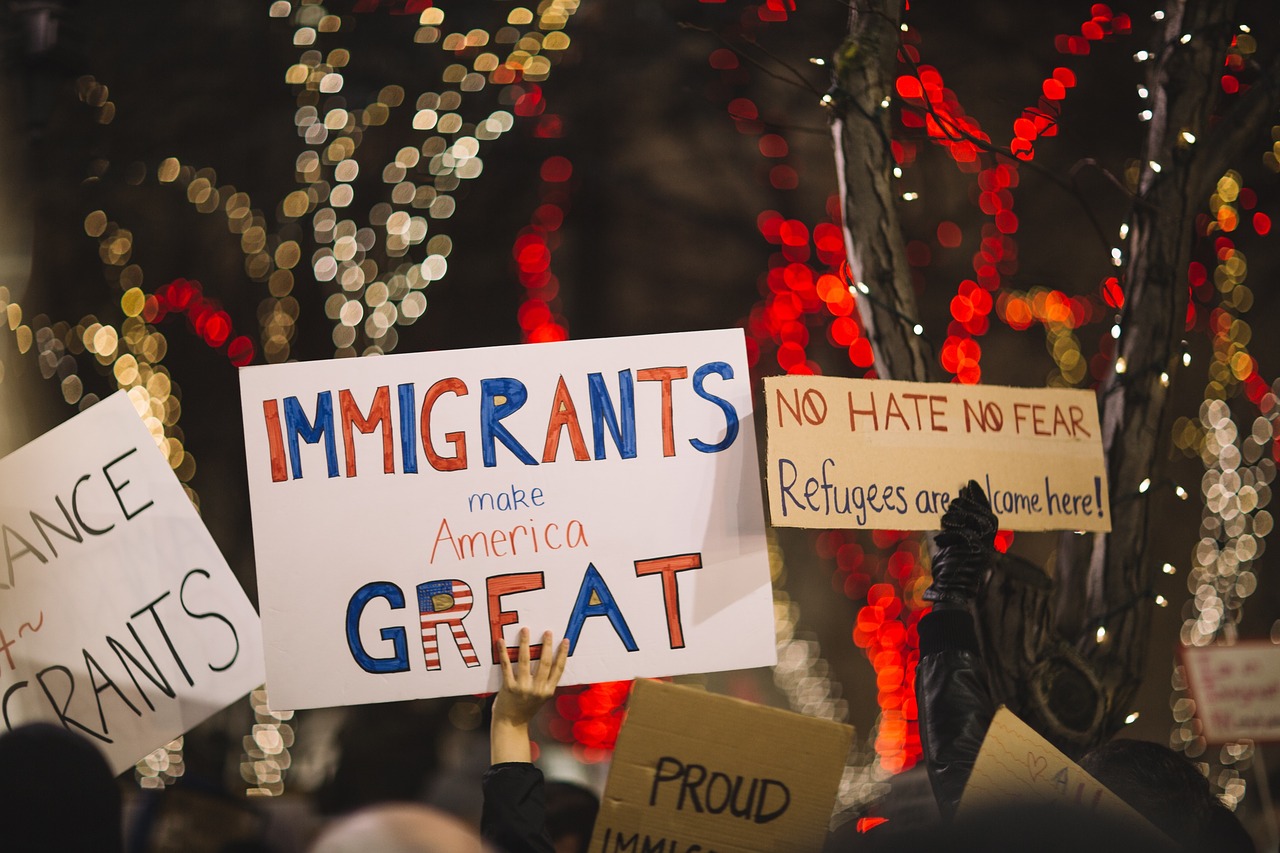 ANCE
GRANTS
IMMIGRANTS
make
America
GREAT
NO HATE NO FEAR
Refugees are lcome here!
PROUD
ALL